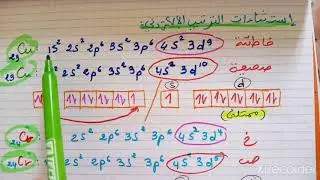 إستثناءات الترتيب الإلكتروني
₂₉Cu: 1S² 2S² 2p⁶ 3S² 3p⁶ 4S² 3d⁹ خاطئة
₂₉Cu: S² 2S² 2p⁶ 3S² 3p⁶ 3d¹⁰ صحيحة
S d
1L 1L 1L 1L 1L / 1 1L 1L 1L 1L 1L
₂₄Cr: S² 2S² 2p⁶ 3S² 3p⁶ 4S² 3d⁴ خ
₂₄Cr: 2S² 2p⁶ 3S² 3p⁶ 3d⁵